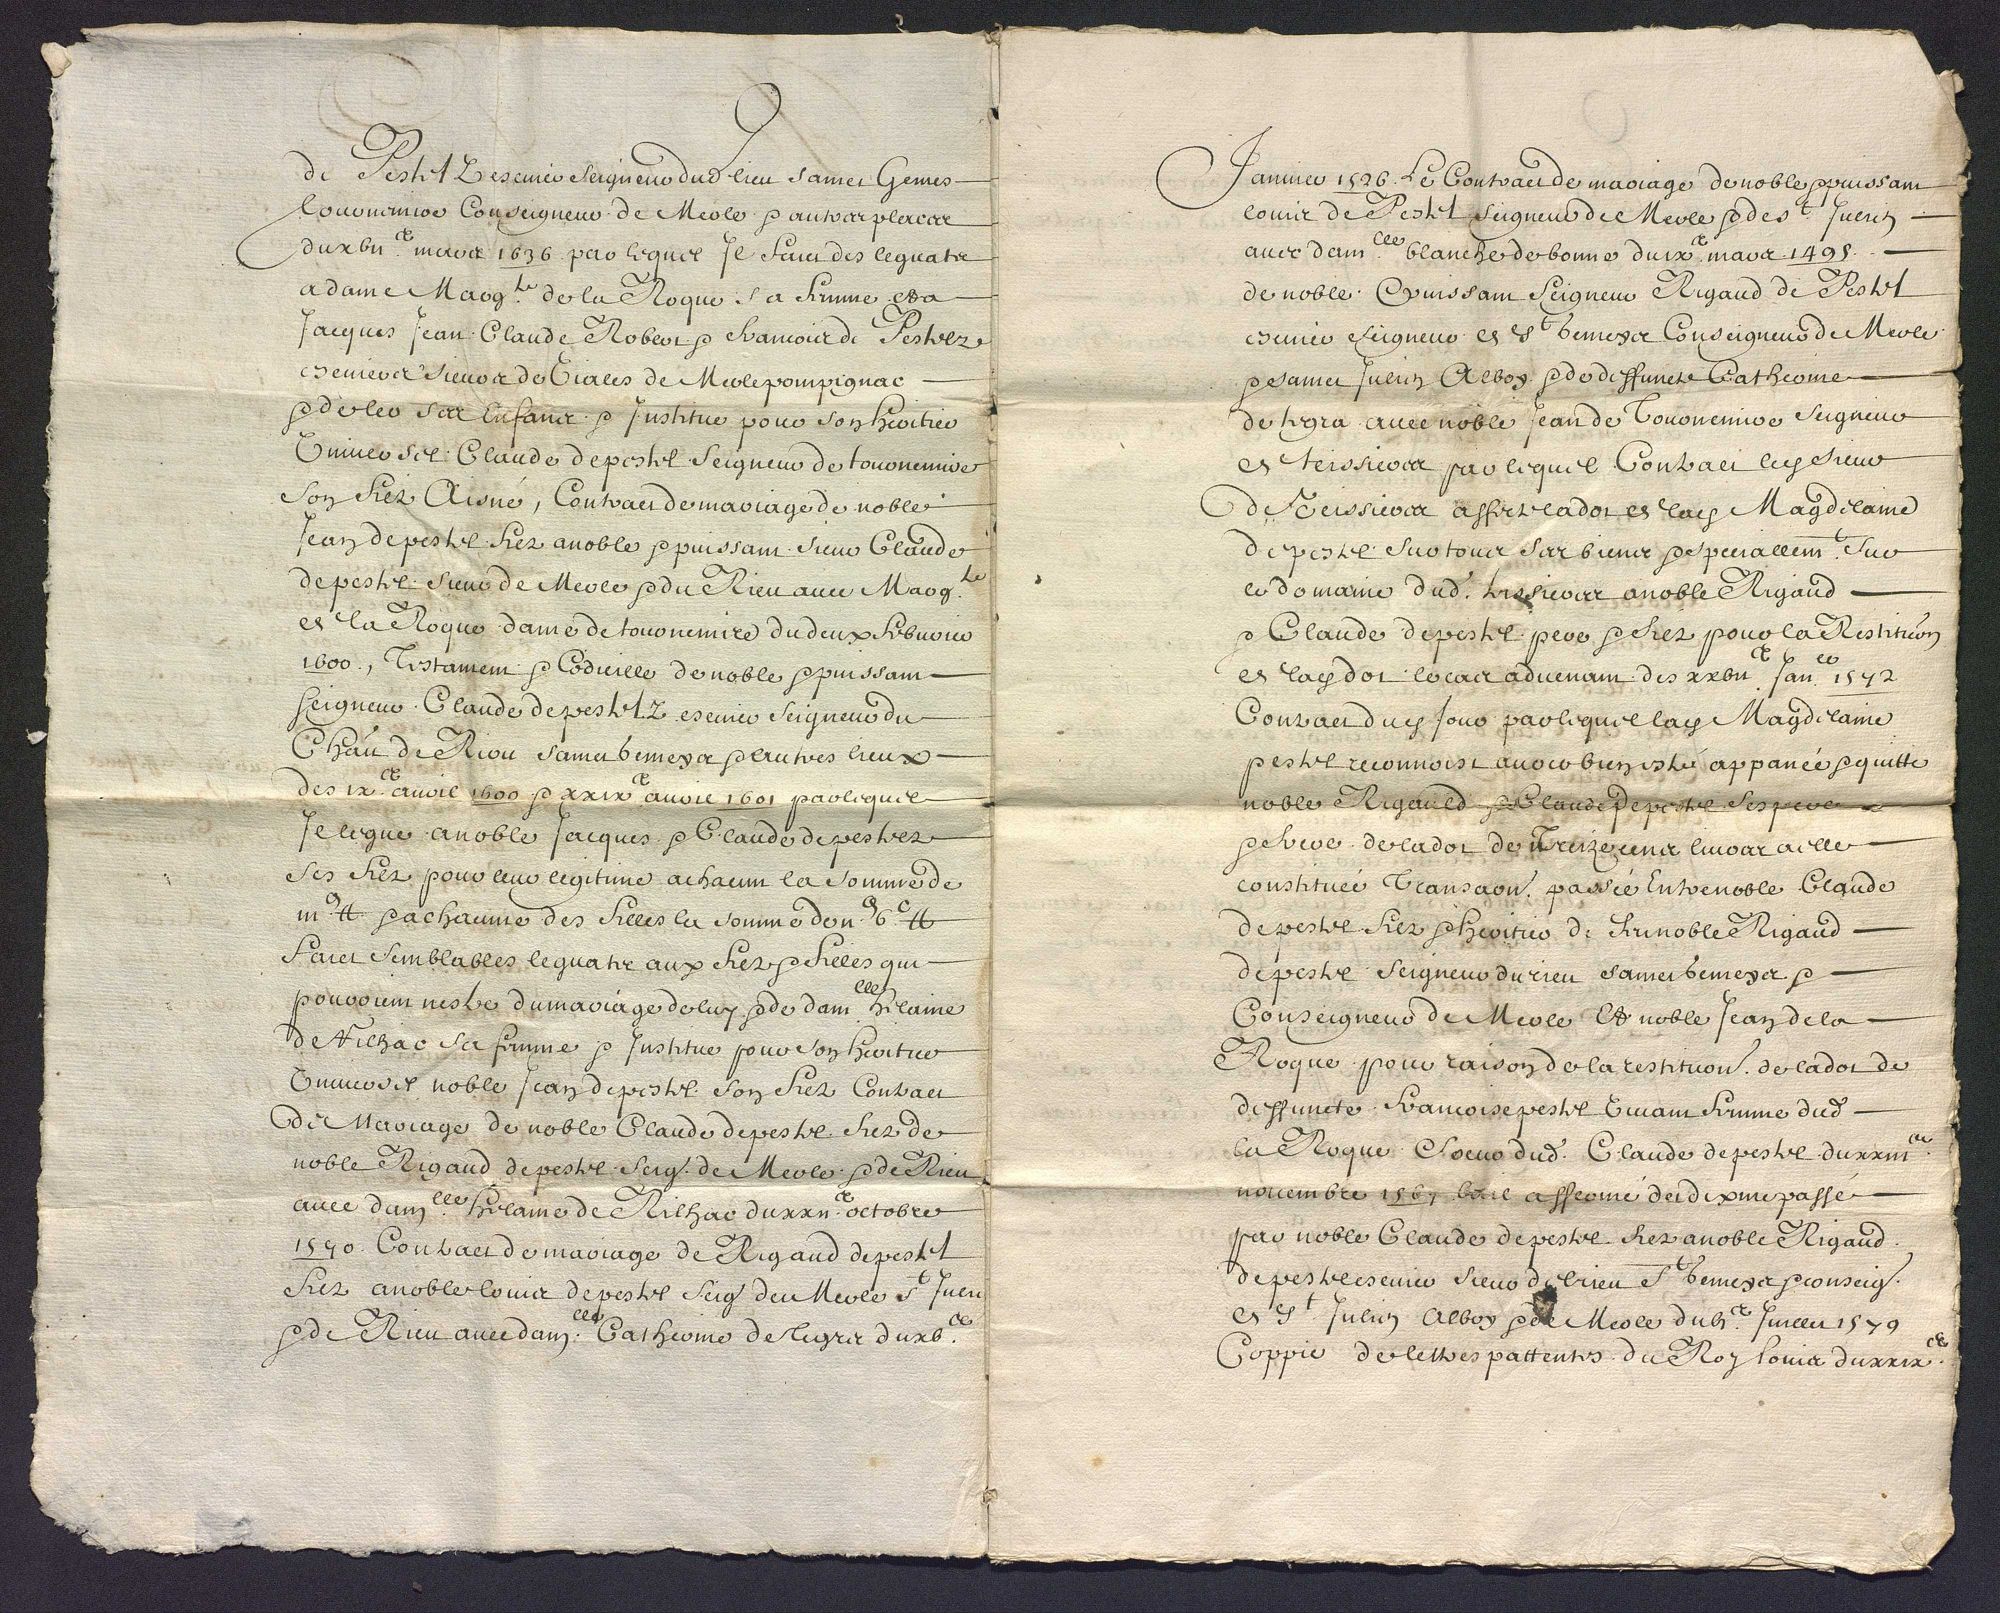 de Pestelz escuier seigneur dud lieu samet Gemes
tournemire Conseigneur de Merle & autres places
du xvii.e mars 1636 par lequel Il faict des leguatz
a dame Marg.te de la Roque sa femme et a
Jacques Jean Claude Robert & francois de Pestelz
escuiers sieurs de de Merle pompignac
& de ses enfans & Institue pour son heritier
Universel Claude de pestel Seigneur de tournemire
son filz Aisné, Contract de mariage de noble
Jean de pestel filz a noble & puissant sieur Claude
de pestel sieur de Merle & du Rieu avec Marg.te
et la Roque dame de tournemire du deux febvrier
1600, Testament & Codicille de noble & puissant
seigneur Claude de pestelz escuier seigneur du
Chau de Riou samet & autres lieux
des ix.e avril 1600 & xxix.e avril 1601 par lequel
Il legue a noble Jacques & Claude de pestelz
ses filz pour leur legitime a chacun la somme de
& a chacune des filles la somme de
faict semblables leguatz aux filz & filles qui
pourroient nestre du mariage de luy & de dam.lle helaine
de Rilhac sa femme & Institue pour son heritier
Universel noble Jean de pestel son filz Contract
de Mariage de noble Claude de pestel filz de
noble Rigaud de pestel seig.r de Merle & de Rieu
avec dam.lle helaine de Rilhac du xxii.e octobre
1570. Contract de mariage de Rigaud de pestel
filz a noble louis de pestel seig.r de Merle st Juli
& de Rieu avec dam.lle Catherine de legra du xv.e
Janvier 1526. Le Contract de mariage de noble & puissant
louis de Pestel seigneur de Merle & de s.t Julien
avec dam.lle blanche de bonne du ix.e mars 1495.
de noble & puissant Seigneur Rigaud de Pestel
escuier seigneur et s.t Conseigneur de Merle
& samet Julien Alboy & de deffuncte Catherine
de legra avec noble Jean de Tournemire Seigneur
et teissieres par lequel Contract ledy sieur
de Teissieres assize la dot et lady Magdelaine
de pestel sur tous ses biens & speciallem.t sur
le domaine dud. teissieres a noble Rigaud
& Claude de pestel pere & filz pour la Restituon
et lady dot le cas advenant des xxvii.e Jan.er 1572
Contract dudy Jour par lequel lady Magdelaine
pestel reconnoist avoir bien esté appanée & quitte
noble Rigauld & Claude de pestel ses pere
& frere de la dot de Treize cens livres a elle
constituée Transaon passée Entre noble Claude
de pestel filz & heritier de feu noble Rigaud
de pestel seigneur du rieu samet &
Conseigneur de Merle et noble Jean de la
Roque pour raison de la restituon de la dot de
deffuncte francoise pestel vivant femme dud
la Roque soeur dud. Claude de pestel du xxiii.e
novembre 1567 bail a fferme de dixme passé
par noble Claude de pestel filz a noble Rigaud
de pestel escuier sieur de brieu s.t & conseig.r
et s.t Julien Alboy & de Merle du Juillet 1579
Coppie de lettres pattentes du Roy louis du xxix.e